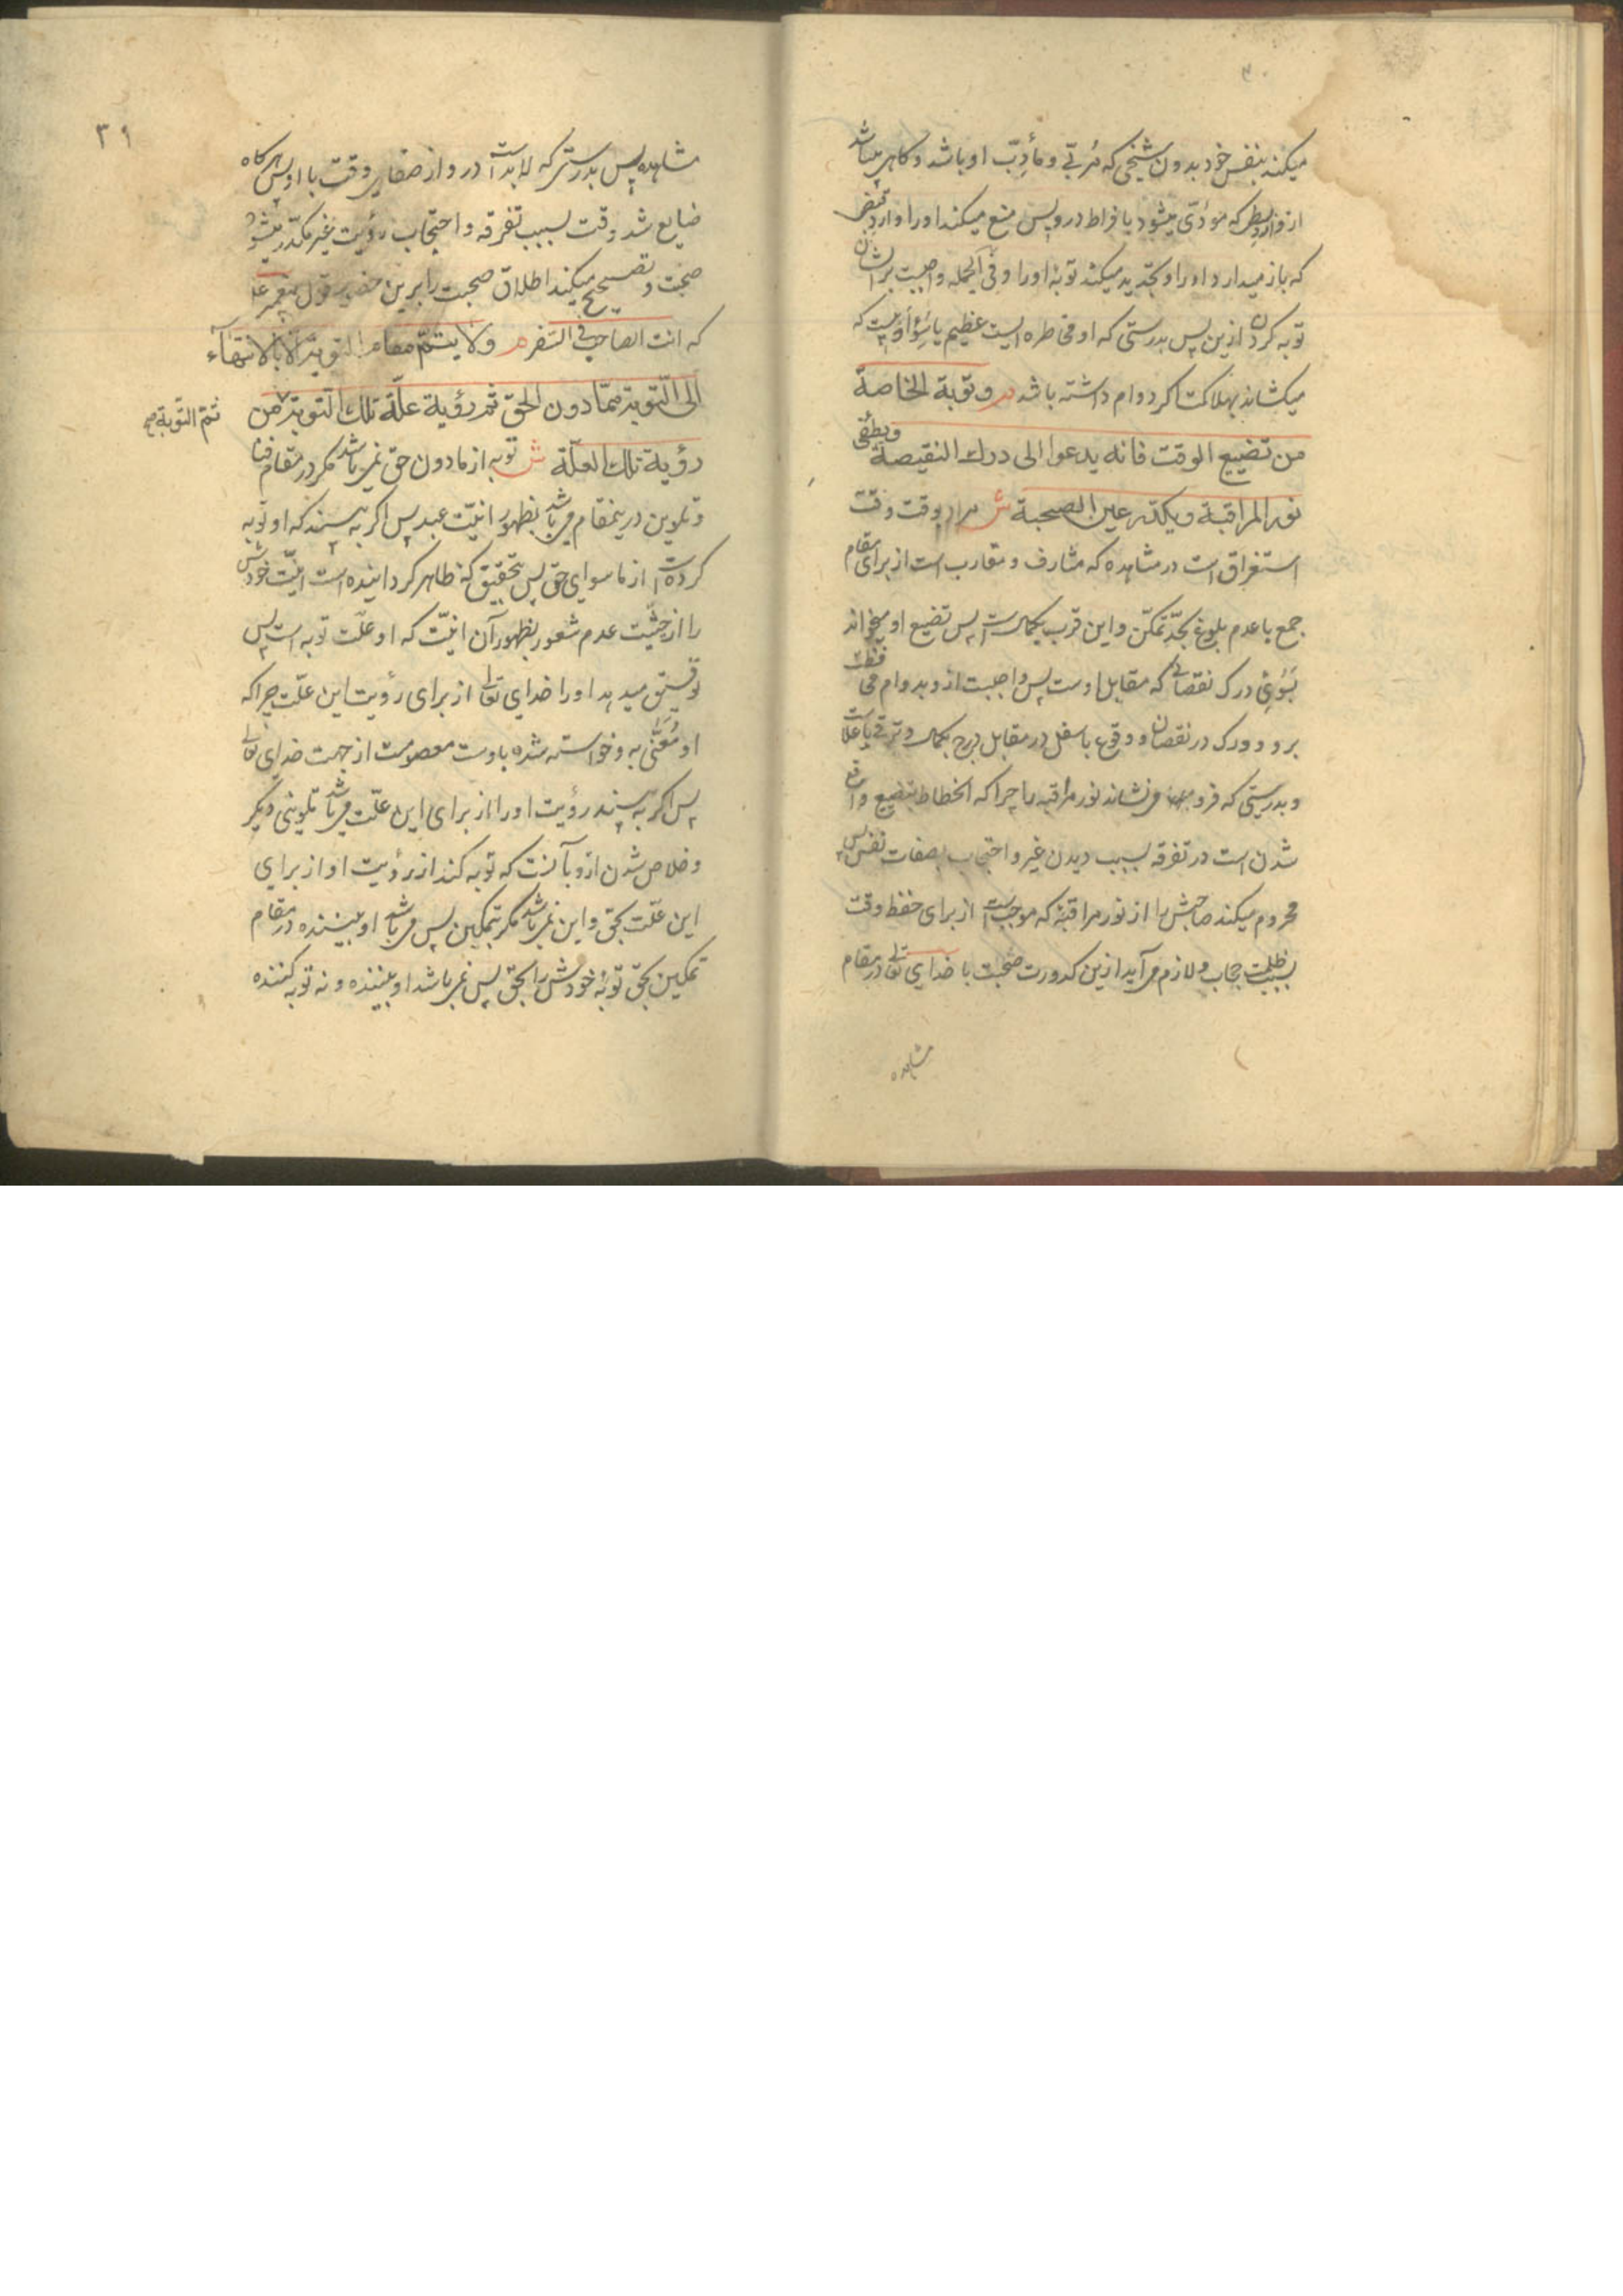 میکند بنفس خود بدون شیخی که مربّی و مأدِبّ او باشد و کاهی میباشد
از وارد بسطی که مؤدّی میشود بافراط درو پس منع میکند او را وارد قبض
که باز میدارد او را و تجدید میکند توبهٔ او را و فی الجمله واجبست بر ایشان
توبه کردن ازین پس بدرستی که او مخاطره ایست عظیم یا سؤ ادبیست که
میکشاند بهلاکت اکر دوام داشته باشد م و توبة الخاصة
من تضییع الوقت فانه یدعوا الی درک النقیصة و یطفی
نور المراقبة و یکدر عین الصحبة ش مراد از وقت وقت
استغراق است در مشاهده که مشارف و مقارب است از برای مقام
جمع با عدم بلوغ بحدّ تمکّن و این قرب بکمال است پس تضییع او میخواند
بسوی درک نقصانی که مقابل اوست پس واجبست ازو بدوام محافظت
برو و درک در نقصان و وقوع باسفل در مقابل درج بکمال و ترقی باعلاست
و بدرستی که فرو می نشاند نور مراقبه را چرا که انحطاط بتضییع واقع
شدن است در تفرقه بسبب دیدن غیر و احتجاب بصفات نفس پس
محروم میکند صاحبش را از نور مراقبهٔ که موجب است از برای حفظ وقت
بسبب ظلمت حجاب و لازم می آید ازین کدورت صحبت با خدای تعالی در مقام
مشاهده
۳۱
مشاهده پس بدرستی که لابد است درو از صفای وقت با او پس هرکاه
ضایع شد وقت بسبب تفرقه و احتجاب رؤیت غیر مکدّر میشود
صحبت و تصحیح میکند اطلاق صحبت را برین حضور قول پیغمبر علـ
که انت الصاحب فی السّفر م و لا یتمّ مقام التوبة الّا بالانتهآء
الی التّوبة ممّا دون الحقّ ثم رؤیة علّة تلک التوبة من
تتم التّوبة صح
رؤیة تلک العلّة ش توبه از مادون حق نمی باشد مکر در مقام فنا
و تلوین درینمقام می باشد بظهور انیّت عبد پس اکر به بیند که او توبه
کرده است از ما سوای حق پس بتحقیق که ظاهر کردانیده است انیّت خودش
را از حیثیت عدم شعور بظهور آن انیّت که او علّت توبه است پس
توفیق میدهد او را خدای تعالی از برای رؤیت این علّت چرا که
او مُعَنّی به و خواسته شده باوست معصومست از جهت خدای تعالی
پس اکر به بیند رؤیت او را از برای این علّت می باشد تلوینی دیکر
و خلاص شدن ازو بآنست که توبه کند از رؤیت او از برای
این علّت بحق و این نمی باشد مکر بتمکین پس می باشد او بیننده در مقام
تمکین بحق توبهٔ خودش را بحق پس نمی باشد او بیننده و نه توبه کننده